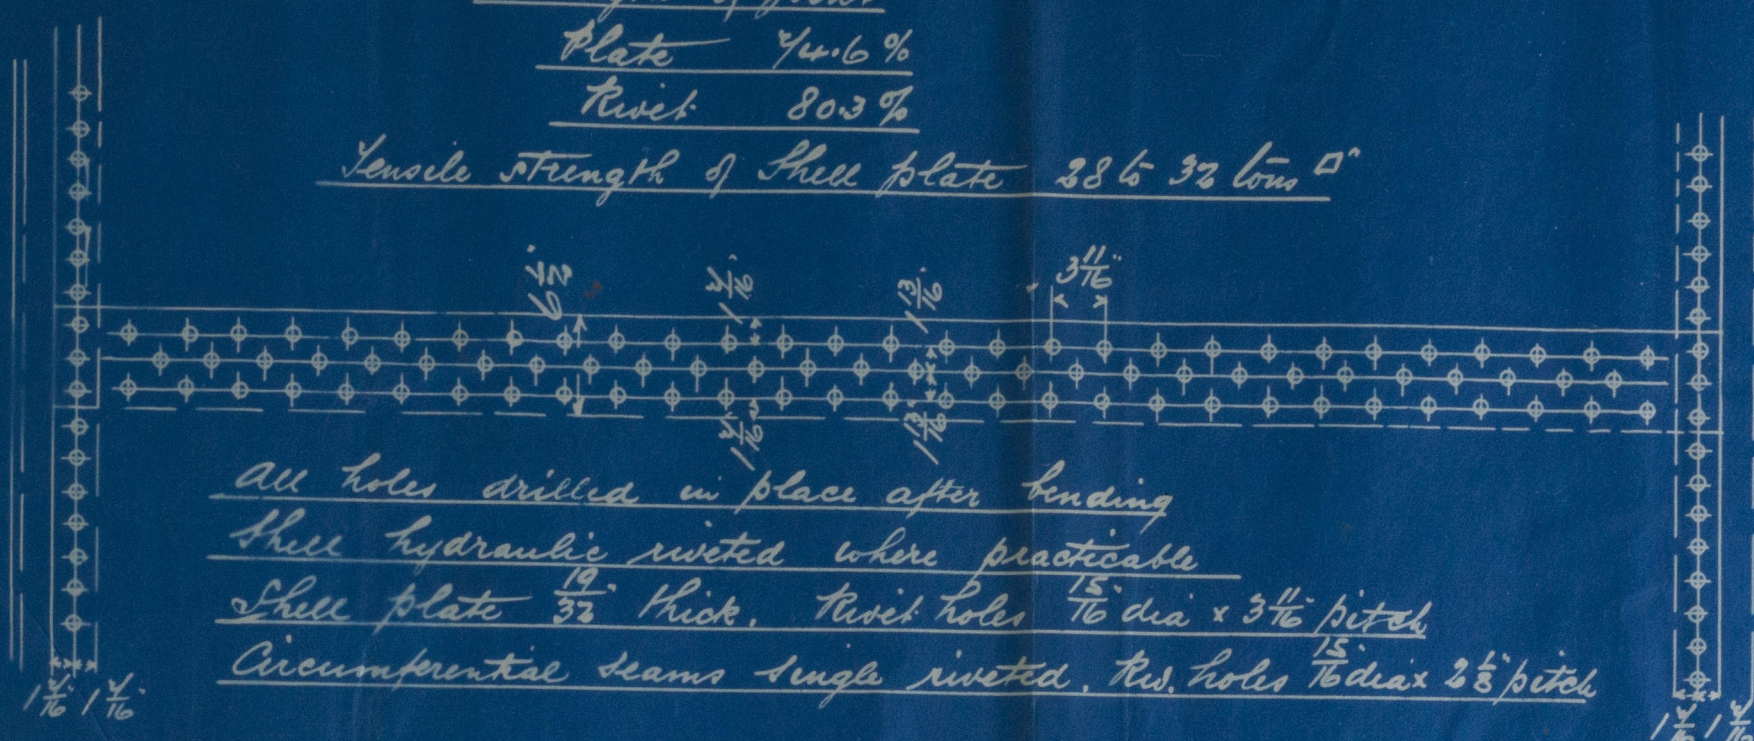 Plate 74.6 %
Rivet 80.3 %
Tensile strength of Shell plate 28 to 32 tons □"
6 1/2"
1 7/16"
1 13/16"
3 11/16"
1 7/16"
1 13/16"
All holes drilled in place after bending
Shell hydraulic riveted where practicable
Shell plate 19/32" thick. Rivet holes 15/16" dia x 3 11/16" pitch
Circumferential seams single riveted. Riv. holes 15/16" dia x 2 1/8" pitch
1 7/16" 1 7/16"
1 7/16" 1 7/16"